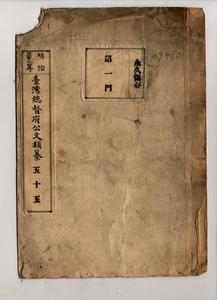 永久保存
第一門
明治
臺灣總督府公文類纂 五十五